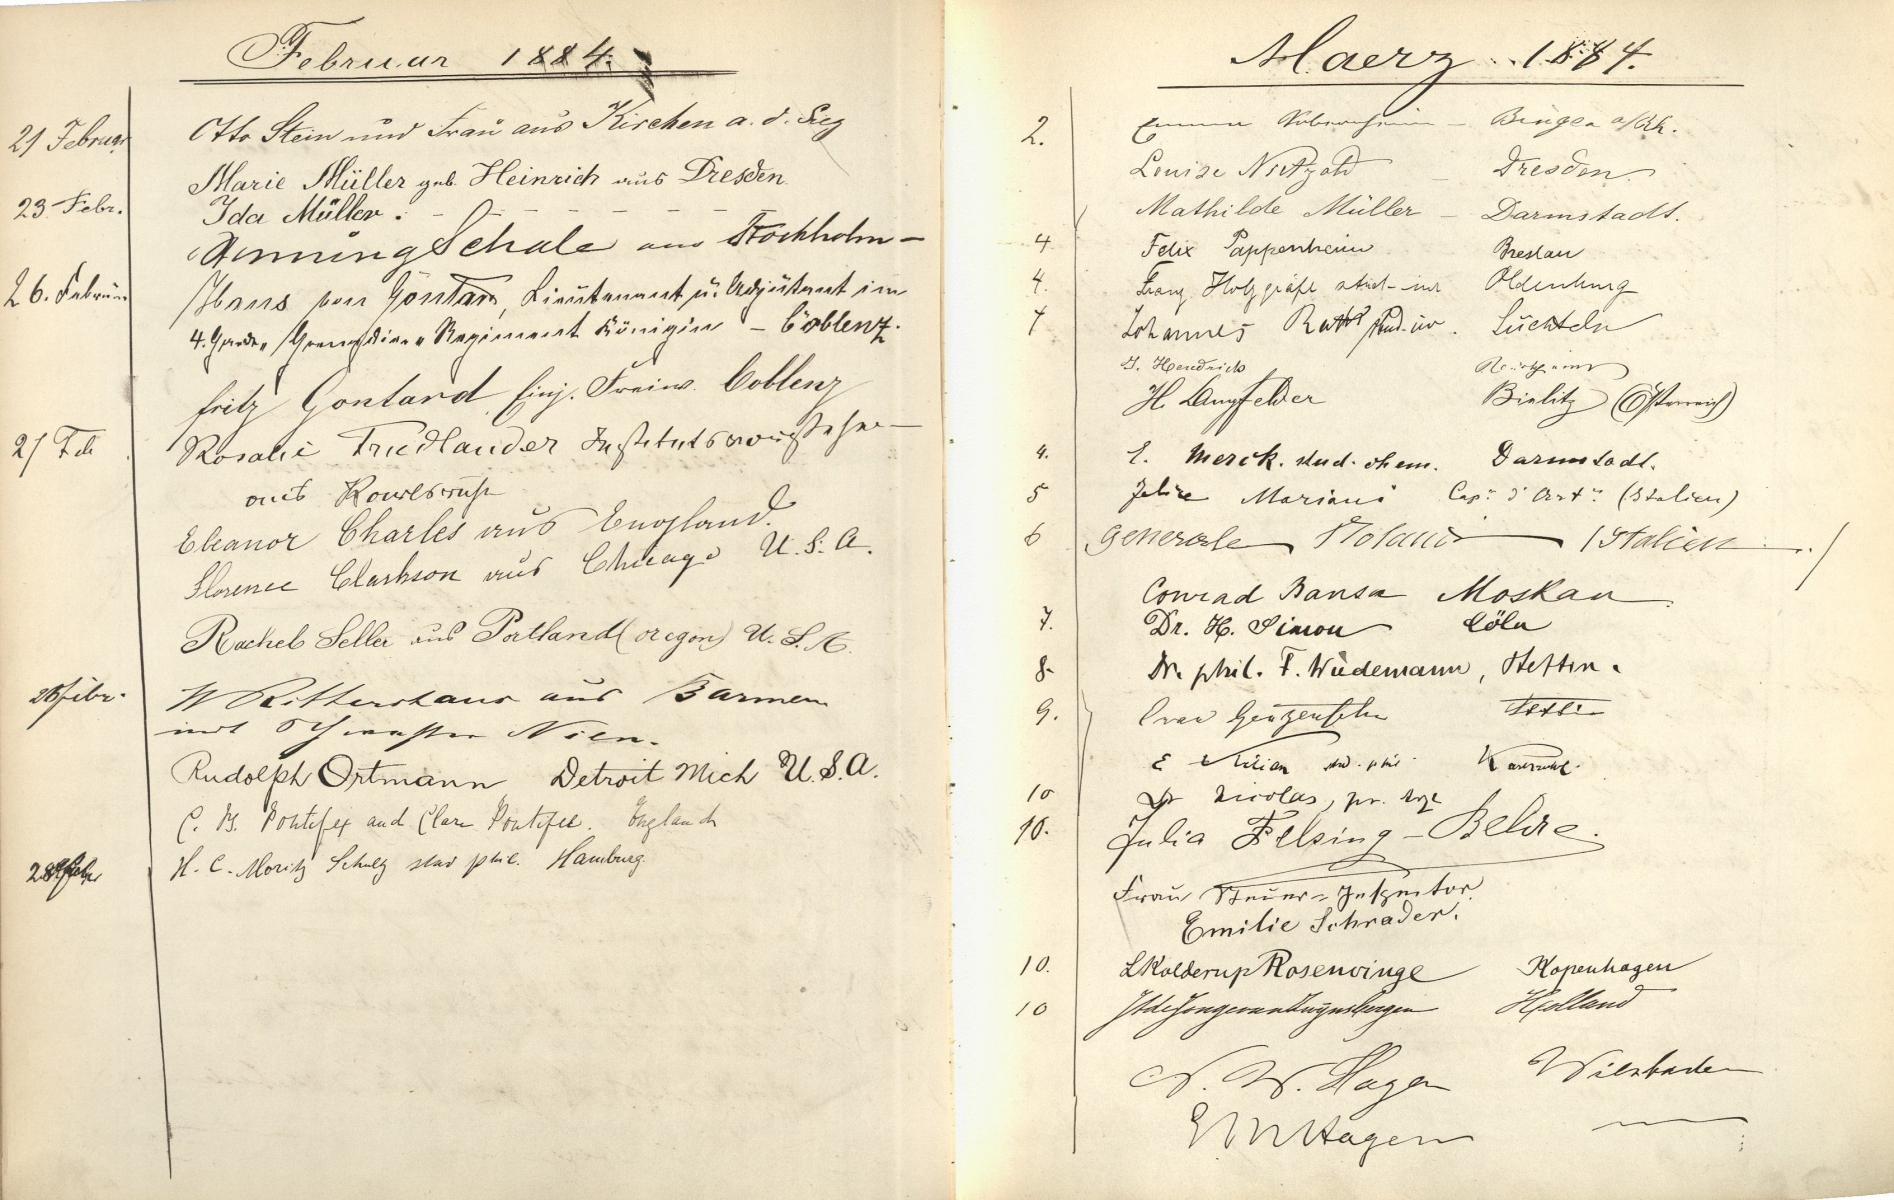 Februar 1884.
21 Februar Otto Stein und Frau aus Kirchen a. d. Sieg
Marie Müller geb. Heinrich aus Dresden
23. Febr. Ida Müller.
Schale aus Stockholm
26. Februar Hans von Gontard, Lieutenant u. Adjutant im
4. Garde-Grenadier-Regiment Königin – Coblenz.
Fritz Gontard, Einj. Freiw. Coblenz
27 Feb Rosalie Friedlander Institutsvorsteherin
aus Karlsruhe
Eleanor Charles aus England.
Florence Clarkson aus Chicago U. S. A.
Rachel Seller aus Portland (Oregon) U. S. A.
28 Febr. W Rittershaus aus Barmen
mit Schwester
Rudolph Ortmann Detroit Mich U. S. A.
C. Pontifex and Clare Pontifex. England
28 Febr H. C. Moritz Schulz stud phil. Hamburg.
Maerz 1884.
2. Bingen a/Rh.
Louise Dresden.
Mathilde Müller – Darmstadt.
4 Felix Pappenheim Breslau
4. Franz Holzgräfe stud. iur Oldenburg
4 Johannes stud. iur. Süchteln
Hendrich
H. Bielitz (Österreich)
4. E. Merck. stud. chem. Darmstadt.
5 Felice Mariani Cap. d'Art. (Italien)
6 Generale (Italien)
Conrad Bansa Moskau
7. Dr. H. Simon Cöln
8. Dr. phil. F. Wüdemann, Stettin.
9.
E Kilian stud. phil. Karlsruhe.
10 Dr Nicolas, pr. Arzt
10. Julia Felsing – Belire.
Frau Steuer-Inspector
Emilie Schrader.
10. L Kolderup Rosenvinge Kopenhagen
10 Holland
N. W. Hagen Wiesbaden
E W Hagen